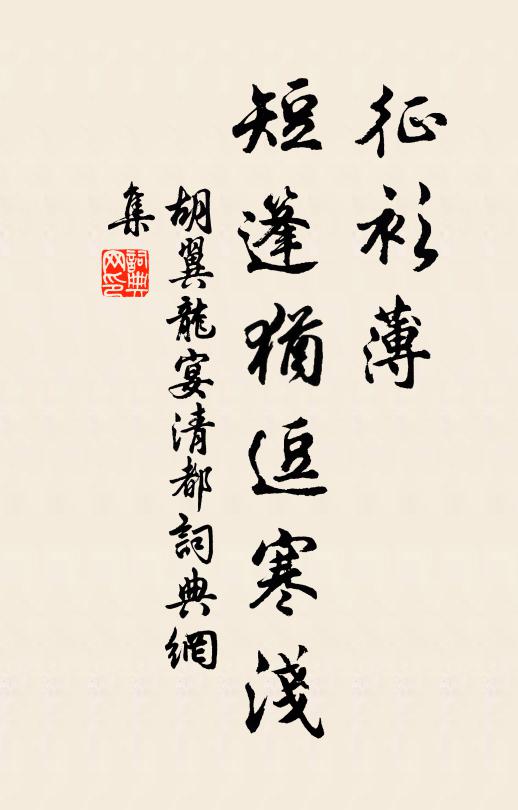 征衫薄
短篷猶逗寒淺
胡翼龍宴清都詞典網
集
詞典
网印